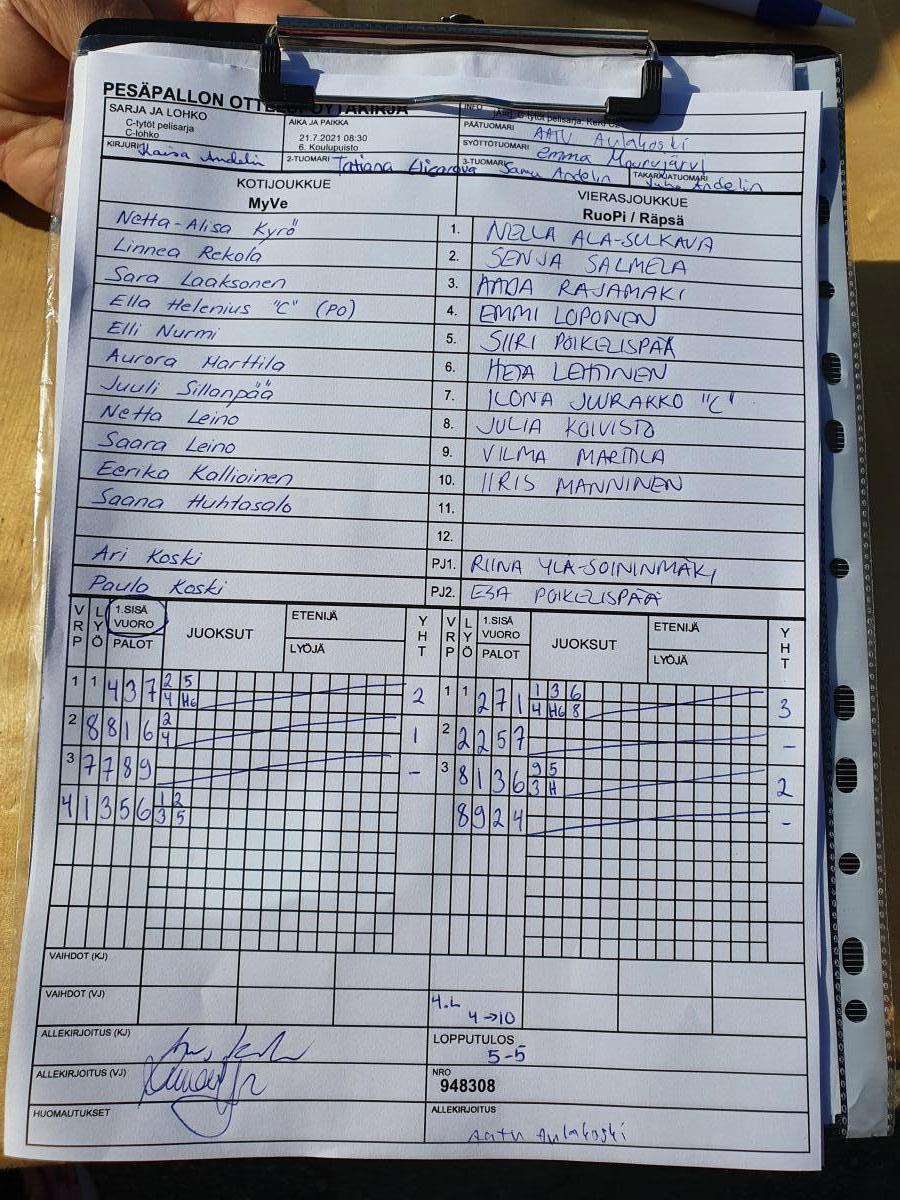 PESÄPALLON OTTELUPÖYTÄKIRJA
SARJA JA LOHKO
C-tytöt pelisarja
C-lohko
AIKA JA PAIKKA
21.7.2021 08:30
6. Koulupuisto
INFO
PÄÄTUOMARI AATU Aulakoski
SYÖTTÖTUOMARI Emma
KIRJURI Kaisa Andelin
2-TUOMARI Tatiana
3-TUOMARI Samu Andelin
TAKARAJATUOMARI Juha Andelin
KOTIJOUKKUE
MyVe
VIERASJOUKKUE
RuoPi / Räpsä
Netta-Alisa Kyrö 1. NELLA ALA-SULKAVA
Linnea Rekola 2. SENJA SALMELA
Sara Laaksonen 3. AADA RAJAMÄKI
Ella Helenius "C" (PO) 4. EMMI LOPONEN
Elli Nurmi 5. SIIRI POIKELISPÄÄ
Aurora Marttila 6. HETA LEHTINEN
Juuli Sillanpää 7. ILONA JUURAKKO "C"
Netta Leino 8. JULIA KOIVISTO
Saara Leino 9. VILMA MARTTILA
Eerika Kallioinen 10. IIRIS MANNINEN
Saana Huhtasalo 11.
12.
Ari Koski PJ1. RIINA YLÄ-SOININMÄKI
Paula Koski PJ2. ESA POIKELISPÄÄ
VRP LYÖ 1.SISÄ VUORO PALOT JUOKSUT ETENIJÄ LYÖJÄ YHT VRP LYÖ 1.SISÄ VUORO PALOT JUOKSUT ETENIJÄ LYÖJÄ YHT
1 1 4 3 7 2 5 2 1 1 2 7 1 1 3 6 3
4 H6 4 H6 8
2 8 8 1 6 2 1 2 2 2 5 7 -
4
3 7 7 8 9 - 3 8 1 3 6 9 5 2
3 H
4 1 3 5 6 1 2 8 9 2 4 -
3 5
VAIHDOT (KJ)
VAIHDOT (VJ) 4.L
4→10
ALLEKIRJOITUS (KJ)
LOPPUTULOS
5-5
ALLEKIRJOITUS (VJ)
NRO
948308
HUOMAUTUKSET
ALLEKIRJOITUS
Aatu Aulakoski